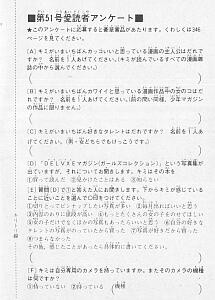 ■第51号愛読者アンケート■
★このアンケートに応募すると豪華賞品があたります。くわしくは346
ページを見てください。
〔A〕キミがいまいちばんカッコいいと思っている漫画の主人公はだれで
すか? 名前を1人あげてください。(キミが読んでいるすべての漫画雑
誌の中から選んでください。)
〔B〕キミがいまいちばんカワイイと思っている漫画作品中の女のコはだ
れですか? 名前を1人あげてください。(前の問い同様、少年マガジン
の作品に限りません。)
〔C〕キミがいまいちばん好きなタレントはだれですか? 名前を1人あ
げてください。(男・女どちらでもけっこうです。)
〔D〕「DELUXEマガジン(ガールズコレクション)」という写真集が
出ていますが、それについてお聞きします。キミはその本を
〔E〕質問〔D〕で①と答えた人にお聞きします。下からキミが感じている
ことに近いことを選んで○印をつけてください。
その他、感じたことがあったら具体的に書いてください。
〔F〕キミは自分専用のカメラを持っていますか。またそのカメラの機種
は何ですか?
①持っていない ②持っている (機種 )